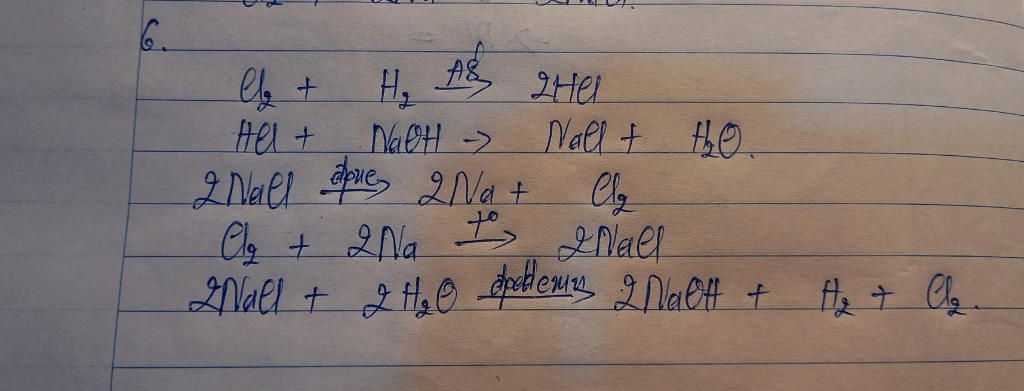 6.
Cl₂ + H₂ → 2HCl
HCl + NaOH → NaCl + H₂O.
2NaCl đpnc → 2Na + Cl₂
Cl₂ + 2Na t° → 2NaCl
2NaCl + 2H₂O → 2NaOH + H₂ + Cl₂.